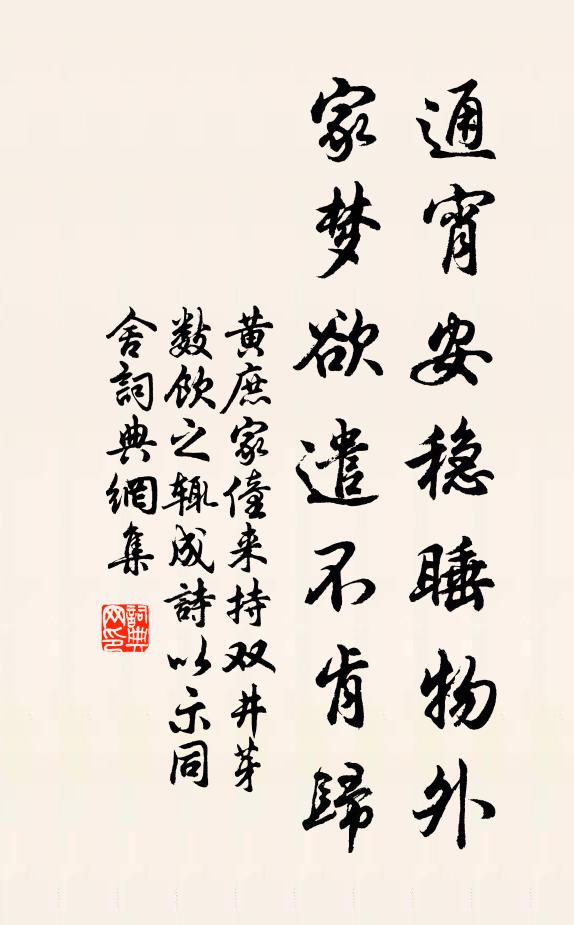 通宵安稳睡物外
家梦欲遣不肯歸
黄庶家僮来持双井芽
数饮之辄成詩以示同
舍詞典網集
詞典网印